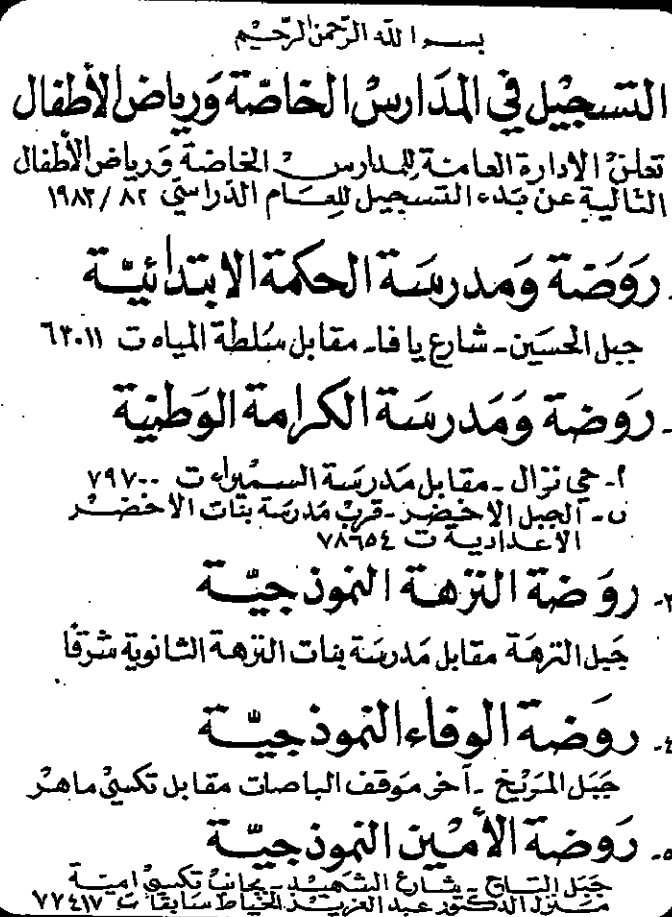 بسم الله الرحمن الرحيم
التسجيل في المدارس الخاصة ورياض الأطفال
تعلن الادارة العامة للمدارس الخاصة ورياض الأطفال
التالية عن بدء التسجيل للعام الدراسي ٨٢ /١٩٨٣
روضة ومدرسة الحكمة الابتدائية
جبل الحسين - شارع يافا - مقابل سلطة المياه ت ٦٣٠١١
روضة ومدرسة الكرامة الوطنية
أ - حي نزال - مقابل مدرسة السميراء ت ٧٩٧٠٠
ب - الجبل الاخضر - قرب مدرسة بنات الاخضر
الاعدادية ت ٧٨٦٥٤
٣- روضة النزهة النموذجية
جبل النزهة مقابل مدرسة بنات النزهة الثانوية شرقا
٤- روضة الوفاء النموذجية
جبل المريخ - آخر موقف الباصات مقابل تكسي ماهر
٥- روضة الأمين النموذجية
جبل التاج - شارع الشهيد - بجانب تكسي امية
منزل الدكتور عبد العزيز الخياط سابقا ت ٧٧٤١٧